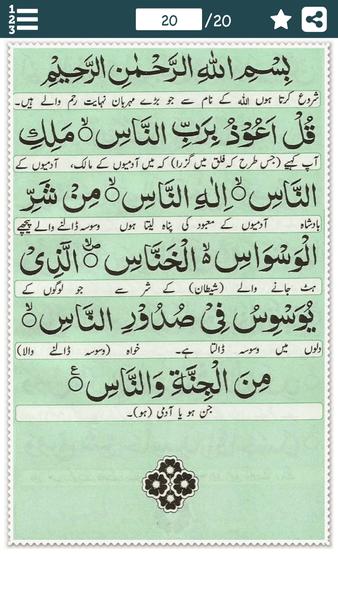 1
2
3
20 /20
بِسْمِ اللهِ الرَّحْمٰنِ الرَّحِيْمِ
شروع کرتا ہوں اللہ کے نام سے جو بڑے مہربان نہایت رحم والے ہیں۔
قُلْ اَعُوْذُ بِرَبِّ النَّاسِ ۙ مَلِكِ
آپ کہیے (جس طرح کہ فلق میں گزرا) کہ میں آدمیوں کے مالک، آدمیوں کے
النَّاسِ ۙ اِلٰهِ النَّاسِ ۙ مِنْ شَرِّ
بادشاہ آدمیوں کے معبود کی پناہ لیتا ہوں وسوسہ ڈالنے والے پیچھے
الْوَسْوَاسِ ەۙ الْخَنَّاسِ ۪ۙ الَّذِیْ
ہٹ جانے والے (شیطان) کے شر سے جو لوگوں کے
یُوَسْوِسُ فِیْ صُدُوْرِ النَّاسِ ۙ
دلوں میں وسوسہ ڈالتا ہے۔ خواہ (وسوسہ ڈالنے والا)
مِنَ الْجِنَّةِ وَالنَّاسِ ۠
جن ہو یا آدمی (ہو)۔